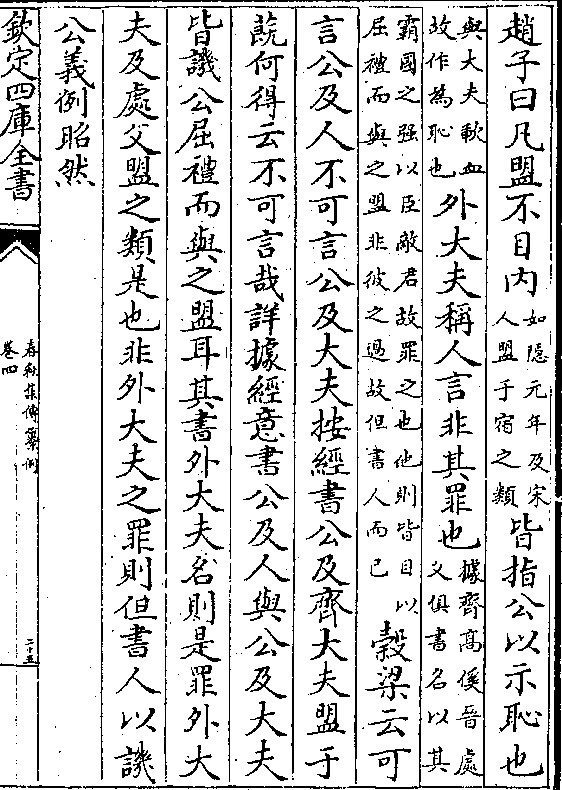 趙子曰凡盟不目内如隱元年及宋人盟于宿之類皆指公以示恥也
與大夫歃血故作為恥也外大夫稱人言非其罪也據齊高傒晉處父俱書名以其
霸國之强以臣敵君故罪之也他則皆目以屈禮而與之盟非彼之過故但書人而已穀梁云可
言公及人不可言公及大夫按經書公及齊大夫盟于
蔇何得云不可言哉詳據經意書公及人與公及大夫
皆譏公屈禮而與之盟耳其書外大夫名則是罪外大
夫及處父盟之類是也非外大夫之罪則但書人以譏
公義例昭然
欽定四庫全書
春秋集傳纂例
卷四
二十五